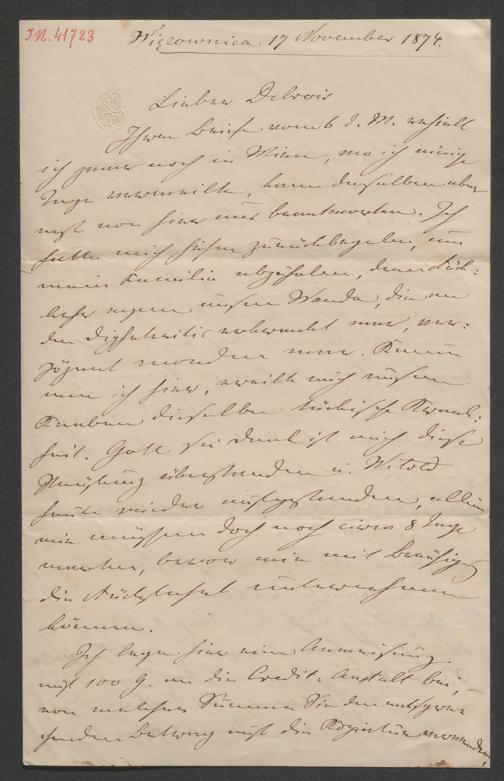 I.N. 41723
Więzownica 17 November 1874.
Lieber Debrois
Ihren Brief vom 6 d. M. erhielt
ich zwar noch in Wien, wo ich einige
Tage verweilte, kann denselben aber
erst von hier aus beantworten. Ich
hatte mich hieher zurückbegeben, um
meine Familie abzuholen, deren Rück=
kehr wegen unserer Wanda, die an
der Diphtheritis erkrankt war, ver=
zögert worden war. Kaum
war ich hier, ereilte auch unseren
Knaben dieselbe tückische Krank=
heit. Gott sei Dank ist auch diese
Prüfung überstanden u. Witold
heute wieder aufgestanden, allein
wir müssen doch noch circa 8 Tage
warten, bevor wir mit Beruhigung
die Rückfahrt unternehmen
können.
Ich lege hier eine Anweisung
auf 100 g. an die Credit-Anstalt bei,
von welcher Summe Sie den entspre-
chenden Betrag auf die Copiatur verwenden,